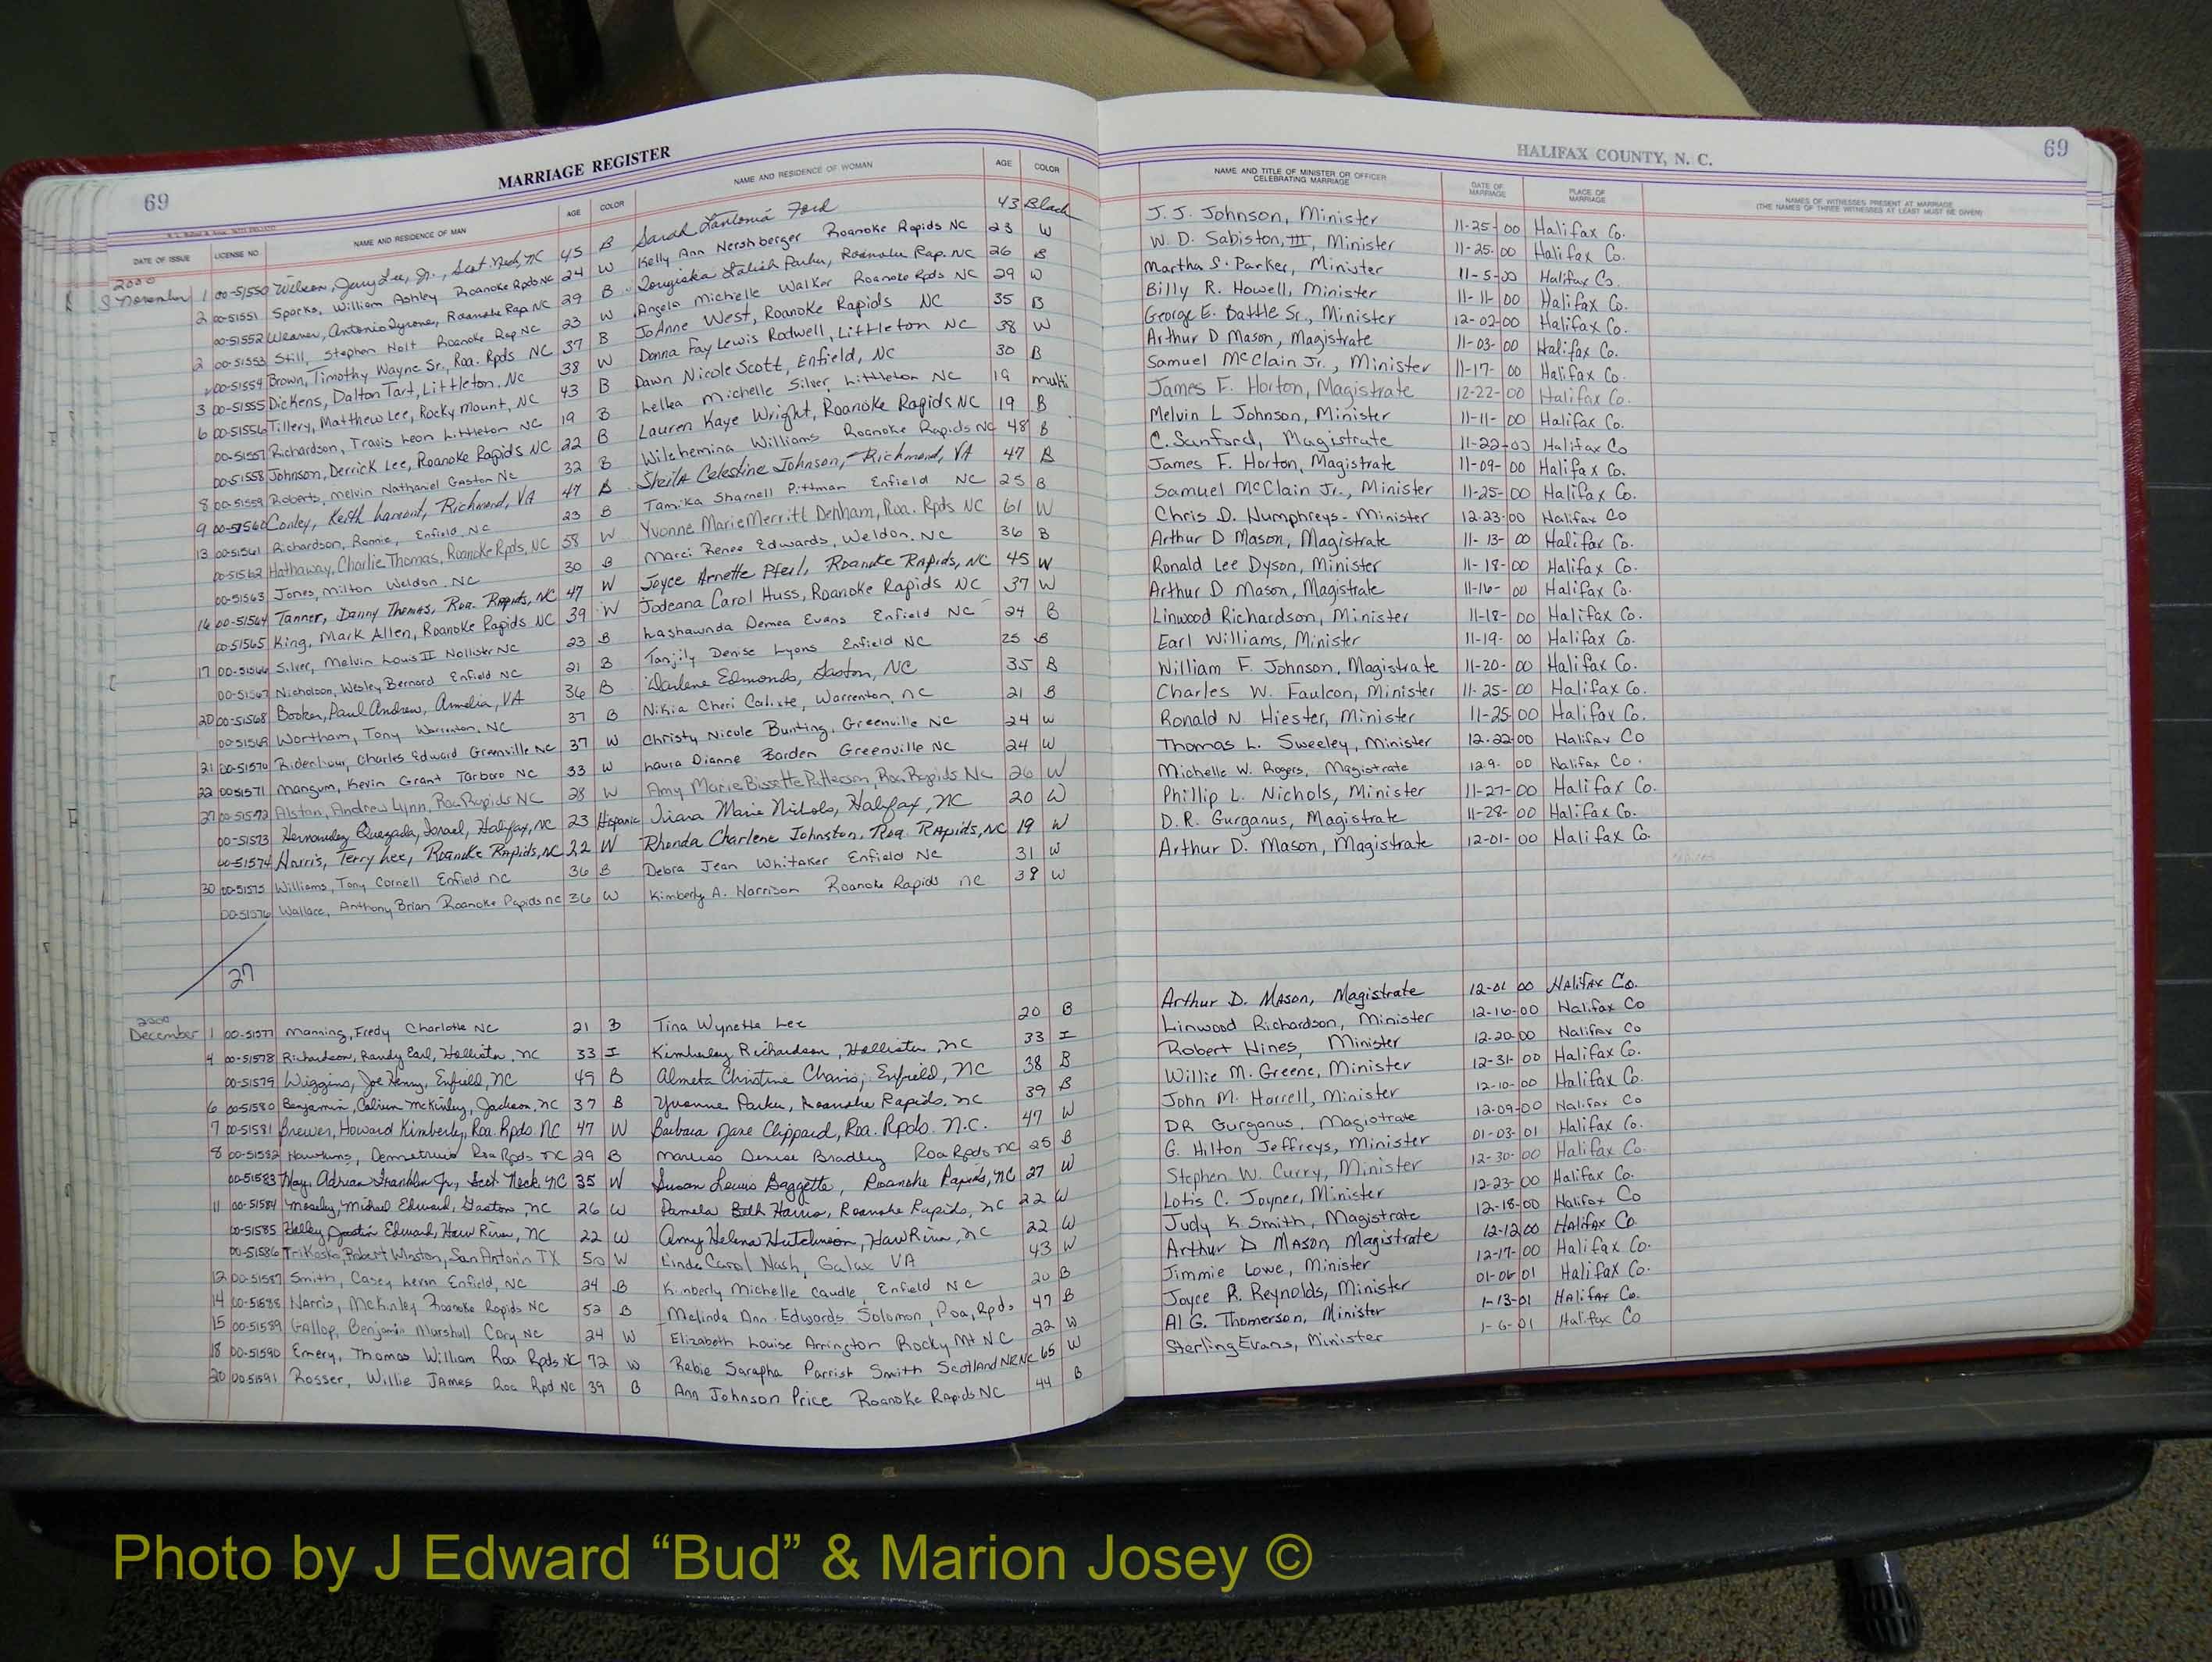 69 MARRIAGE REGISTER
DATE OF ISSUE LICENSE NO. NAME AND RESIDENCE OF MAN AGE COLOR NAME AND RESIDENCE OF WOMAN AGE COLOR
2000
November 1 00-51550 Wilson, Jerry Lee, Jr., Scot. Neck, NC 45 B Sarah Lantonia Ford 43 Black
2 00-51551 Sparks, William Ashley Roanoke Rpds NC 24 W Kelly Ann Hershberger Roanoke Rapids NC 23 W
00-51552 Weaver, Antonio Tyrone, Roanoke Rap. NC 29 B Parker, Roanoke Rap. NC 26 B
2 00-51553 Still, Stephen Holt Roanoke Rap NC 23 W Angela Michelle Walker Roanoke Rpds NC 29 W
00-51554 Brown, Timothy Wayne Sr., Roa. Rpds NC 37 B JoAnne West, Roanoke Rapids NC 35 B
3 00-51555 Dickens, Dalton Tart, Littleton, NC 38 W Donna Fay Lewis Radwell, Littleton NC 38 W
6 00-51556 Tillery, Matthew Lee, Rocky Mount, NC 43 B Dawn Nicole Scott, Enfield, NC 30 B
00-51557 Richardson, Travis Leon Littleton NC 19 B Michelle Silver, Littleton NC 19 multi
00-51558 Johnson, Derrick Lee, Roanoke Rapids NC 22 B Lauren Kaye Wright, Roanoke Rapids NC 19 B
8 00-51559 Roberts, Melvin Nathaniel Gaston NC 32 B Wilehemina Williams Roanoke Rapids NC 48 B
9 00-51560 Conley, Keith Lamont, Richmond, VA 47 B Sheila Celestine Johnson, Richmond, VA 47 B
13 00-51561 Richardson, Ronnie, Enfield NC 23 B Tamika Sharnell Pittman Enfield NC 25 B
00-51562 Hathaway, Charlie Thomas, Roanoke Rpds, NC 58 W Yvonne Marie Merritt Denham, Roa. Rpds NC 61 W
00-51563 Jones, Milton Weldon, NC 30 B Marci Renee Edwards, Weldon, NC 36 B
16 00-51564 Tanner, Danny Thomas, Roa. Rapids, NC 47 W Joyce Arnette Pfeil, Roanoke Rapids, NC 45 W
00-51565 King, Mark Allen, Roanoke Rapids NC 39 W Jodeana Carol Huss, Roanoke Rapids NC 37 W
17 00-51566 Silver, Melvin Louis II Hollister NC 23 B Lashawnda Demea Evans Enfield NC 24 B
00-51567 Nicholson, Wesley Bernard Enfield NC 21 B Tanjily Denise Lyons Enfield NC 25 B
20 00-51568 Booker, Paul Andrew, Amelia, VA 36 B Darlene Edmonds, Gaston, NC 35 B
00-51569 Wortham, Tony Warrenton, NC 37 B Nikia Cheri Warrenton, NC 21 B
21 00-51570 Ridenhour, Charles Edward Greenville NC 37 W Christy Nicole Bunting, Greenville NC 24 W
22 00-51571 Mangum, Kevin Grant Tarboro NC 33 W Laura Dianne Barden Greenville NC 24 W
27 00-51572 Alston, Andrew Lynn, Roa. Rapids NC 28 W Amy Marie Bissette Patterson, Roa. Rapids NC 26 W
00-51573 Hernandez Quezada, Israel, Halifax, NC 23 Hispanic Tiara Marie Nichols, Halifax, NC 20 W
00-51574 Harris, Terry Lee, Roanoke Rapids, NC 22 W Rhonda Charlene Johnston, Roa. Rapids, NC 19 W
30 00-51575 Williams, Tony Cornell Enfield NC 36 B Debra Jean Whitaker Enfield NC 31 W
00-51576 Wallace, Anthony Brian Roanoke Rapids NC 36 W Kimberly A. Harrison Roanoke Rapids NC 38 W
27
2000
December 1 00-51577 Manning, Fredy Charlotte NC 21 B Tina Wynette Lee 20 B
4 00-51578 Richardson, Randy Earl, Hollister, NC 33 I Kimberley Richardson, Hollister, NC 33 I
00-51579 Wiggins, Joe Henry, Enfield, NC 49 B Almeta Christine Enfield, NC 38 B
6 00-51580 Benjamin, McKinley, Jackson, NC 37 B Yvonne Parker, Roanoke Rapids, NC 39 B
7 00-51581 Brewer, Howard Kimberly, Roa. Rpds. NC 47 W Barbara Jane Clippard, Roa. Rpds. N.C. 47 W
8 00-51582 Hawkins, Demetrius Roa Rpds NC 29 B Denise Bradley Roa Rpds NC 25 B
00-51583 Hay, Adrian Franklin Jr., Scot. Neck NC 35 W Susan Lewis Baggette, Roanoke Rapids, NC 27 W
11 00-51584 Moseley, Michael Edward, Gaston, NC 26 W Pamela Beth Harris, Roanoke Rapids, NC 22 W
00-51585 Holley, Justin Edward, Haw River, NC 22 W Amy Helena Hutchinson, Haw River, NC 22 W
00-51586 Trikosko, Robert Winston, San Antonio TX 50 W Linda Carol Nash, Galax VA 43 W
12 00-51587 Smith, Casey Levin Enfield, NC 24 B Kimberly Michelle Caudle, Enfield NC 20 B
14 00-51588 Harris, McKinley Roanoke Rapids NC 52 B Melinda Ann Edwards Solomon, Roa, Rpds 47 B
15 00-51589 Gallop, Benjamin Marshall Cary NC 24 W Elizabeth Louise Arrington Rocky Mt NC 22 W
18 00-51590 Emery, Thomas William Roa Rpds NC 72 W Rebie Sarapha Parrish Smith Scotland NK NC 65 W
20 00-51591 Rosser, Willie James Roa Rpd NC 39 B Ann Johnson Price Roanoke Rapids NC 44 B
HALIFAX COUNTY, N. C. 69
NAME AND TITLE OF MINISTER OR OFFICER CELEBRATING MARRIAGE DATE OF MARRIAGE PLACE OF MARRIAGE NAMES OF WITNESSES PRESENT AT MARRIAGE
(THE NAMES OF THREE WITNESSES AT LEAST MUST BE GIVEN)
J. J. Johnson, Minister 11-25-00 Halifax Co.
W. D. Sabiston, III, Minister 11-25-00 Halifax Co.
Martha S. Parker, Minister 11-5-00 Halifax Co.
Billy R. Howell, Minister 11-11-00 Halifax Co.
George E. Battle Sr., Minister 12-02-00 Halifax Co.
Arthur D Mason, Magistrate 11-03-00 Halifax Co.
Samuel McClain Jr., Minister 11-17-00 Halifax Co.
James F. Horton, Magistrate 12-22-00 Halifax Co.
Melvin L Johnson, Minister 11-11-00 Halifax Co.
C. Sanford, Magistrate 11-22-00 Halifax Co
James F. Horton, Magistrate 11-09-00 Halifax Co.
Samuel McClain Jr., Minister 11-25-00 Halifax Co.
Chris D. Humphreys - Minister 12-23-00 Halifax Co
Arthur D Mason, Magistrate 11-13-00 Halifax Co.
Ronald Lee Dyson, Minister 11-18-00 Halifax Co.
Arthur D Mason, Magistrate 11-16-00 Halifax Co.
Linwood Richardson, Minister 11-18-00 Halifax Co.
Earl Williams, Minister 11-19-00 Halifax Co.
William F. Johnson, Magistrate 11-20-00 Halifax Co.
Charles W. Faulcon, Minister 11-25-00 Halifax Co.
Ronald N Hiester, Minister 11-25-00 Halifax Co.
Thomas L. Sweeley, Minister 12-22-00 Halifax Co
Michelle W. Rogers, Magistrate 12-9-00 Halifax Co.
Phillip L. Nichols, Minister 11-27-00 Halifax Co.
D.R. Gurganus, Magistrate 11-28-00 Halifax Co.
Arthur D. Mason, Magistrate 12-01-00 Halifax Co.
Arthur D. Mason, Magistrate 12-01 00 Halifax Co.
Linwood Richardson, Minister 12-16-00 Halifax Co
Robert Hines, Minister 12-20-00 Halifax Co
Willie M. Greene, Minister 12-31-00 Halifax Co.
John M. Harrell, Minister 12-10-00 Halifax Co.
DR Gurganus, Magistrate 12-09-00 Halifax Co
G. Hilton Jeffreys, Minister 01-03-01 Halifax Co.
Stephen W. Curry, Minister 12-30-00 Halifax Co.
Lotis C. Joyner, Minister 12-23-00 Halifax Co.
Judy K Smith, Magistrate 12-18-00 Halifax Co
Arthur D Mason, Magistrate 12-12 00 Halifax Co.
Jimmie Lowe, Minister 12-17-00 Halifax Co.
Joyce R. Reynolds, Minister 01-06-01 Halifax Co.
Al G. Thomerson, Minister 1-13-01 Halifax Co.
Sterling Evans, Minister 1-6-01 Halifax Co
Photo by J Edward “Bud” & Marion Josey ©